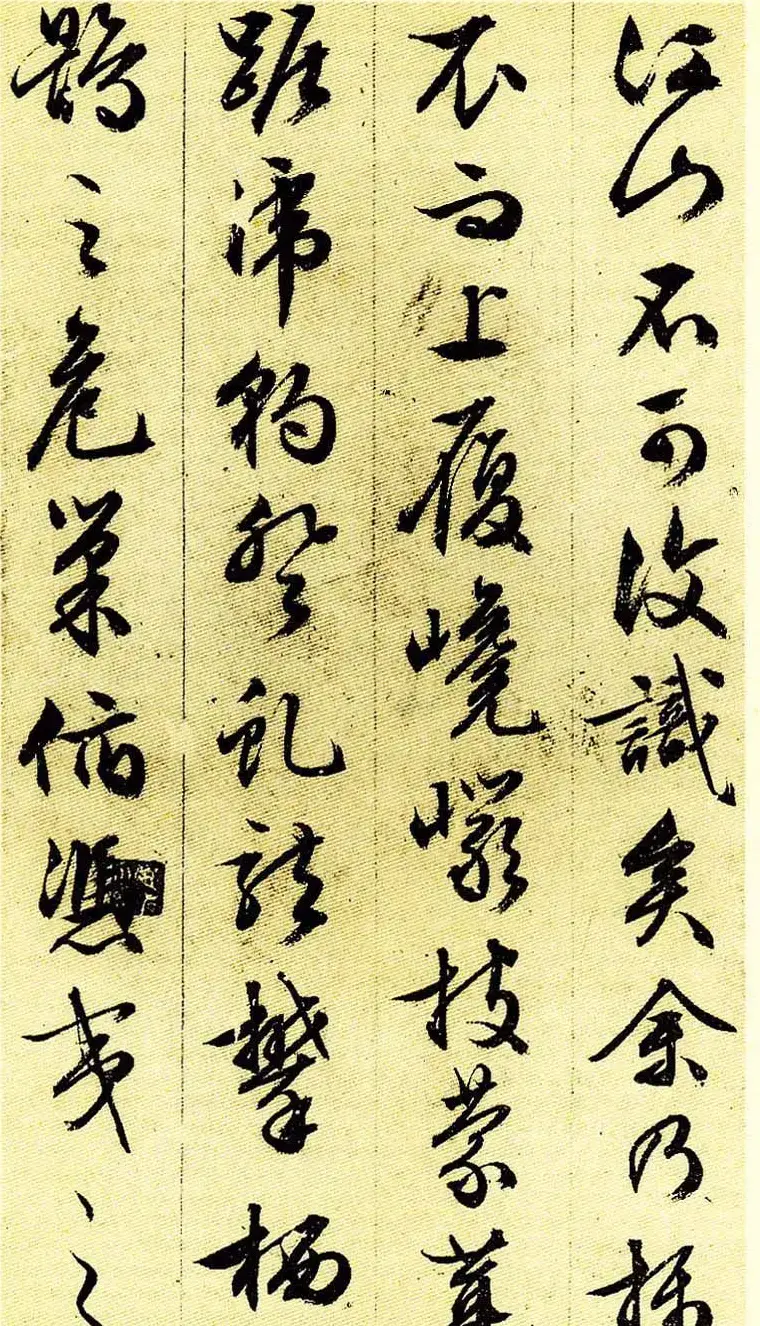 江山不可復識矣余乃
衣而上履巉巖披蒙茸
踞虎豹登虬龍攀栖
鶻之危巢俯馮夷之